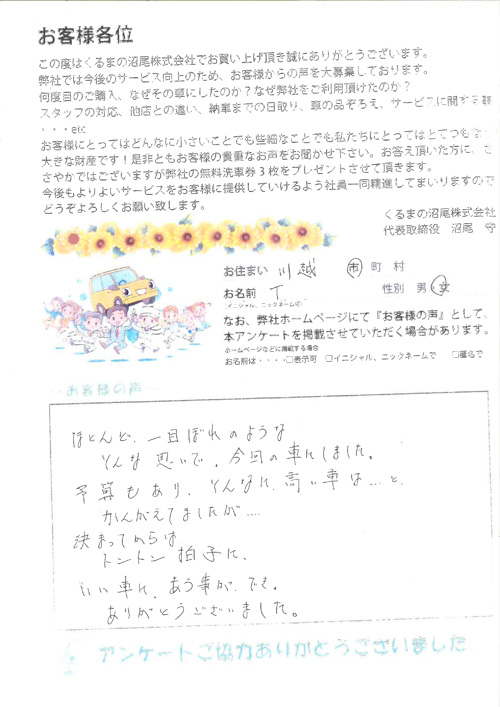 お客様各位
この度はくるまの沼尾株式会社でお買い上げ頂き誠にありがとうございます。
弊社では今後のサービス向上のため、お客様からの声を大募集しております。
何度目のご購入、なぜその車にしたのか？なぜ弊社をご利用頂けたのか？
スタッフの対応、他店との違い、納車までの日取り、車の品ぞろえ、サービスに関する
・・・etc
お客様にとってはどんなに小さいことでも些細なことでも私たちにとってはとても
大きな財産です！是非ともお客様の貴重なお声をお聞かせ下さい。お答え頂いた方に、さ
さやかではございますが弊社の無料洗車券３枚をプレゼントさせて頂きます。
今後もよりよいサービスをお客様に提供していけるよう社員一同精進してまいりますので
どうぞよろしくお願い致します。
くるまの沼尾株式会社
代表取締役 沼尾 守
お住まい 川越 市 町 村
お名前 T 性別 男・女
イニシャル、ニックネーム可
なお、弊社ホームページにて『お客様の声』として、
本アンケートを掲載させていただく場合があります。
ホームページなどに掲載する場合
お名前は・・・・□表示可 □イニシャル、ニックネームで □匿名で
お客様の声
ほとんど、一目ぼれのような
そんな思いで、今回の車にしました。
予算もあり、そんなに、高い車は…と、
かんがえてましたが….
決まってからは
トントン拍子に、
いい車に、あう事が、でき、
ありがとうございました。
アンケートご協力ありがとうございました